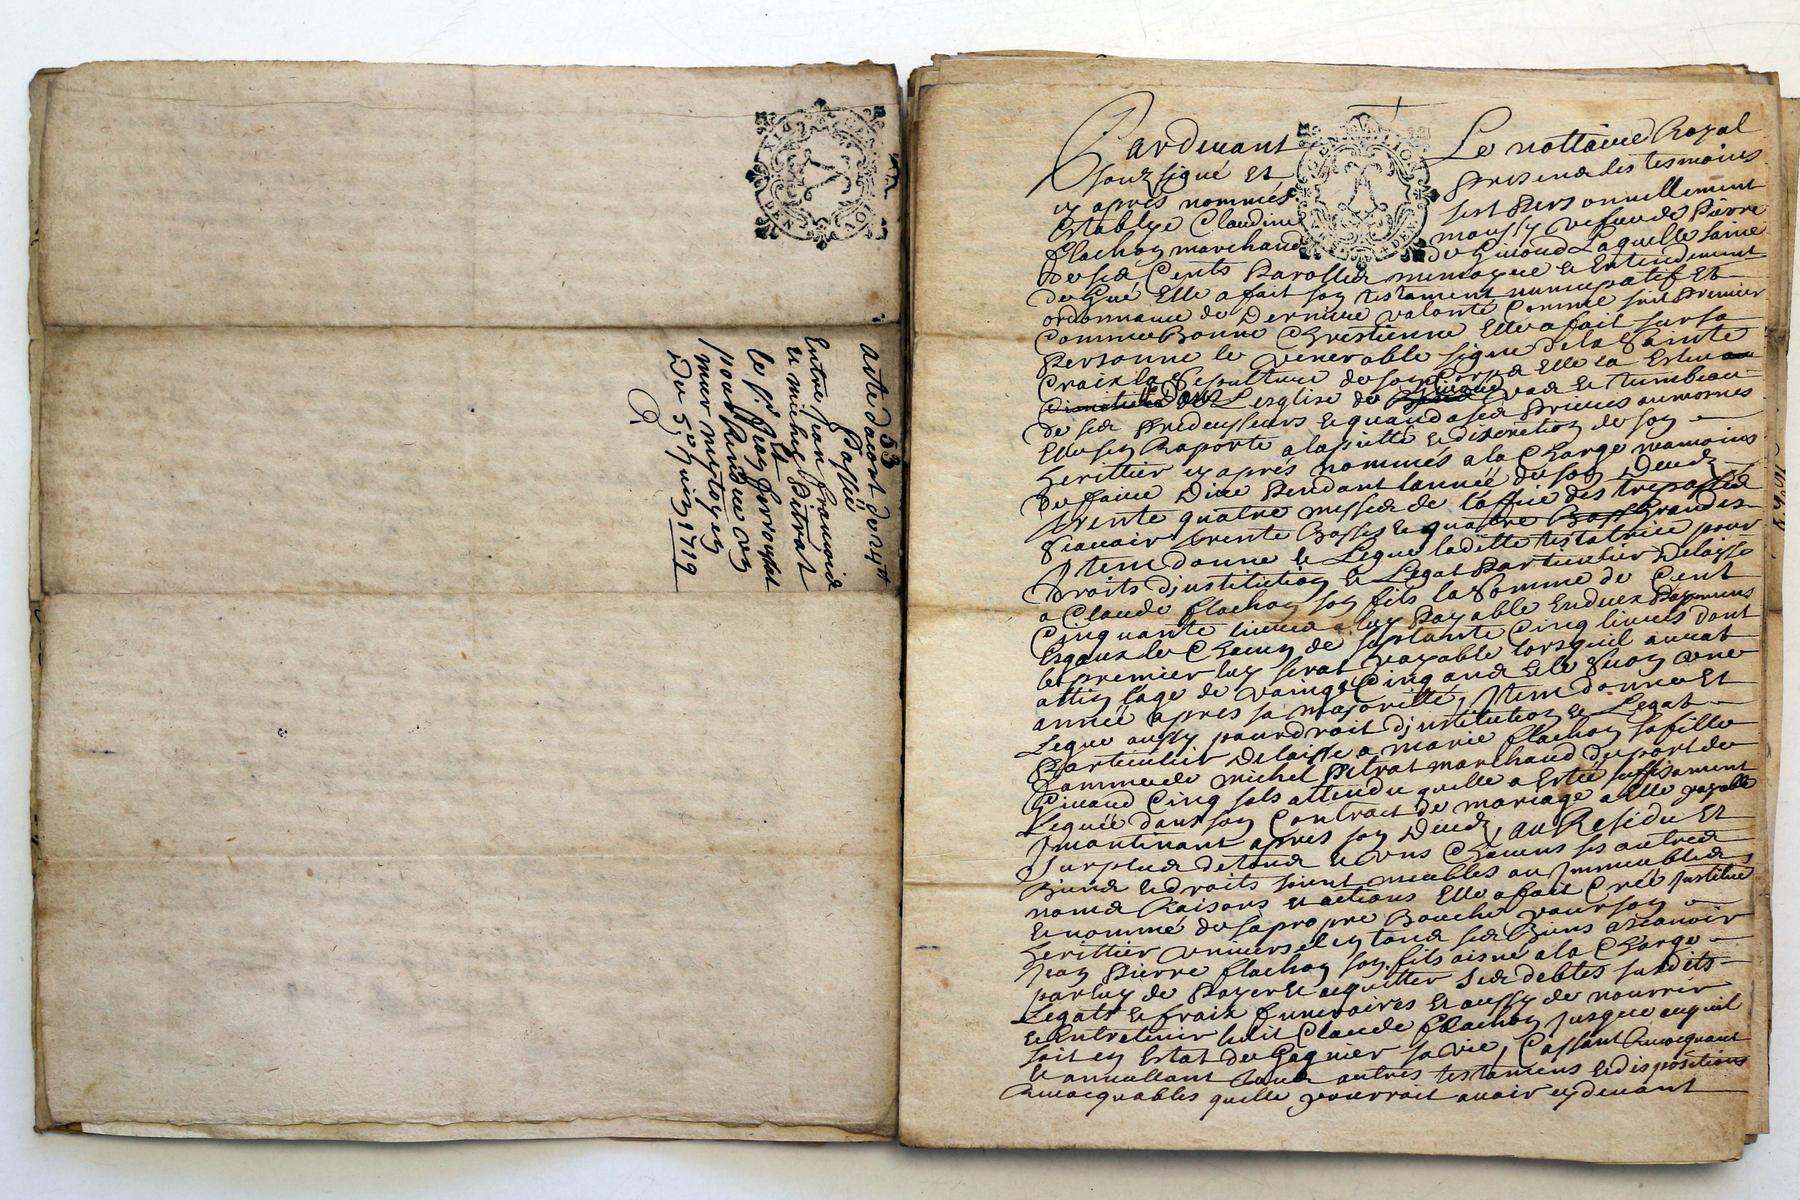 53
acte dacort
Passée
Entre Jean francois
et michel Pitrat
le Sr. Jean
pour Raison d'un
mur mistoyen
Du 5e Juin 1719
Pardevant Le nottaire Royal
soubsigné et presence des tesmoins
cy apres nommés s'est personnellement
establye Claudine moussy vefue de Pierre
flachon marchand de Giuord Laquelle saine
de ses Cents Parolles memoyre et Entendement
de Gré Elle a fait son testament nuncupatif et
ordonnance de Derniere volonté Comme suit premier
Comme Bonne Chrestienne Elle a fait sur sa
Personne le venerable signe de la Sainte
Croix la Sepulture de son Corps Elle la Esleu
dans Lesglise de et tumbeau
de ses Predecesseurs et quand a ses Prieres aumosnes
Elle sen Raporte a la pietté et discretion de son
heritier cy aprés nommés a la Charge neamoins
de faire Dire Pendant lannée de son Deced
trente quatre messes de loffice des trepassés
Scauoir trente Basses et quatre Grandes
Item donne et Legue laditte testatrice pour
Droits dinstitution et Legat Particulier Delaisse
a Claude flachon son fils la Somme de Cent
Cinquante liures a luy Payable En deux Payemens
Esgaux le Chacun de septante Cinq liures dont
le premier luy serat payable lorsquil aurat
attin lage de vaingt Cinq ans et le Second une
année apres sa majoritté, Item donne Et
Legue aussy pour droit dinstitution et Legat
Particulier Delaisse a marie flachon sa fille
femme de michel Pitrat marchand du port de
Giuord Cinq sols attendu quelle a Esté suffisament
Leguée dans son Contract de mariage a Elle payable
Jncontinant apres son Deced, au Residu Et
Surplus de tous et uns Chacuns ses autres
Biens et droits soient meubles ou Jmmeubles
noms Raisons et actions Elle a fait Créé Justitue
et nommé de sa propre Bouche pour son
heritier universel en tous ses Biens ascauoir
Jean Pierre flachon son fils aisné a la Charge
par luy de Payer et acquitter ses debtes susdits
Legats et fraix funeraires et aussy de nourrir
et Entretenir ledit Claude flachon jusques a cequil
soit en Estat de Gagnier sa vie, Cassant Reuocquant
et annullant tous autres testamens et dispositions
Reuocquables quelle pourroit auoir cy deuant